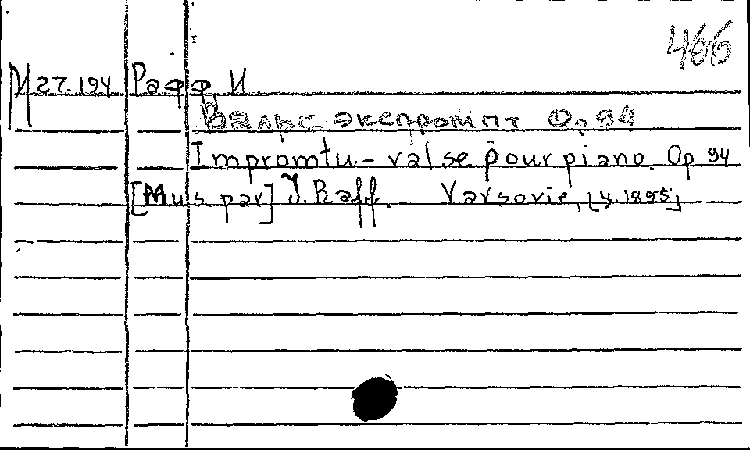 466
М 27.194 Рафф, И
Вальс экспромпт Op 94
Impromtu - valse pour piano. Op 94
[Mus par] J. Raff. Varsovie, [s. 1895]